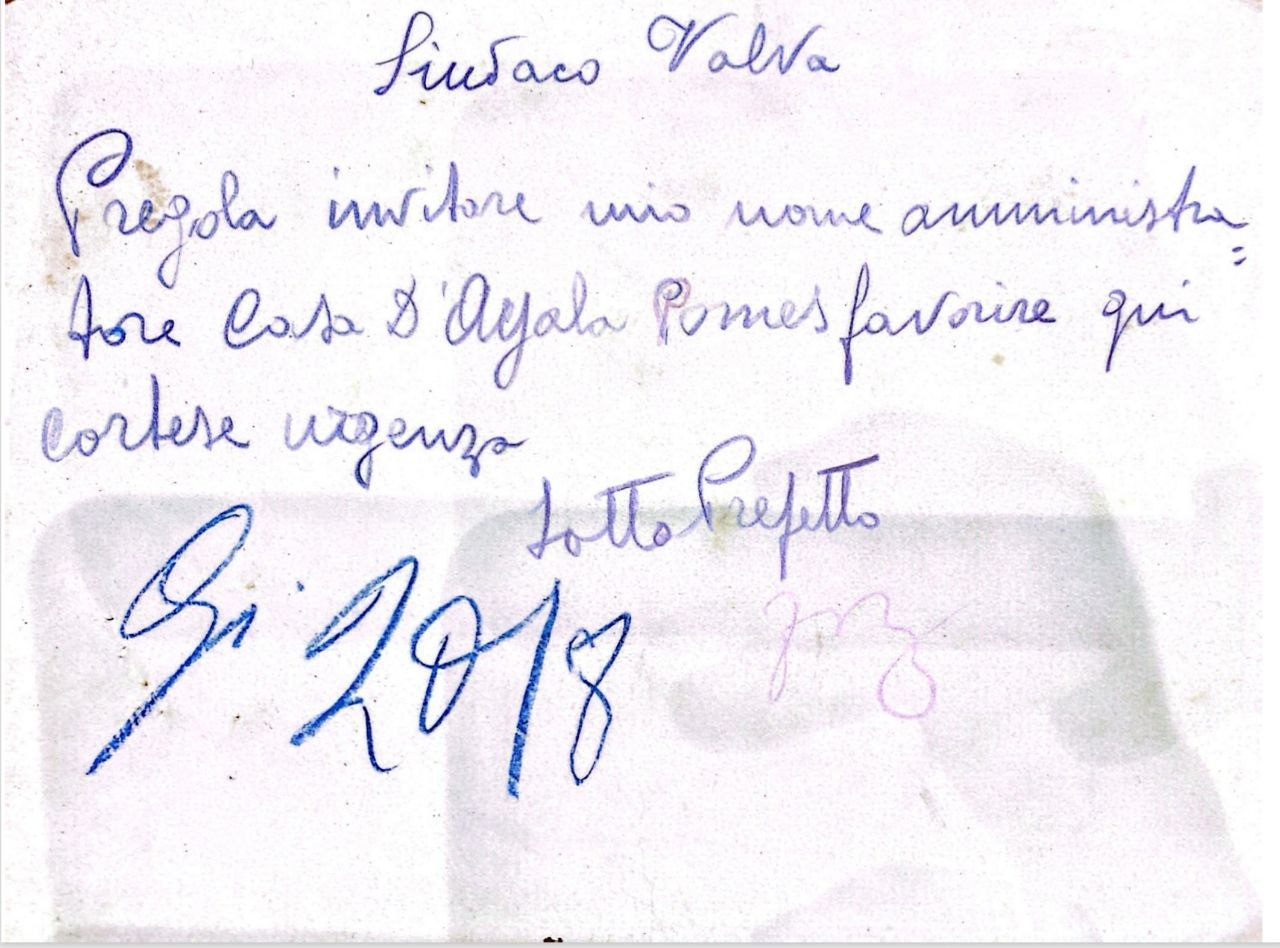 Sindaco Valva
Pregola invitare mio nome amministra=
tore Casa D'Ayala Pomes favorire qui
cortese urgenza
Sotto Prefetto
20/8